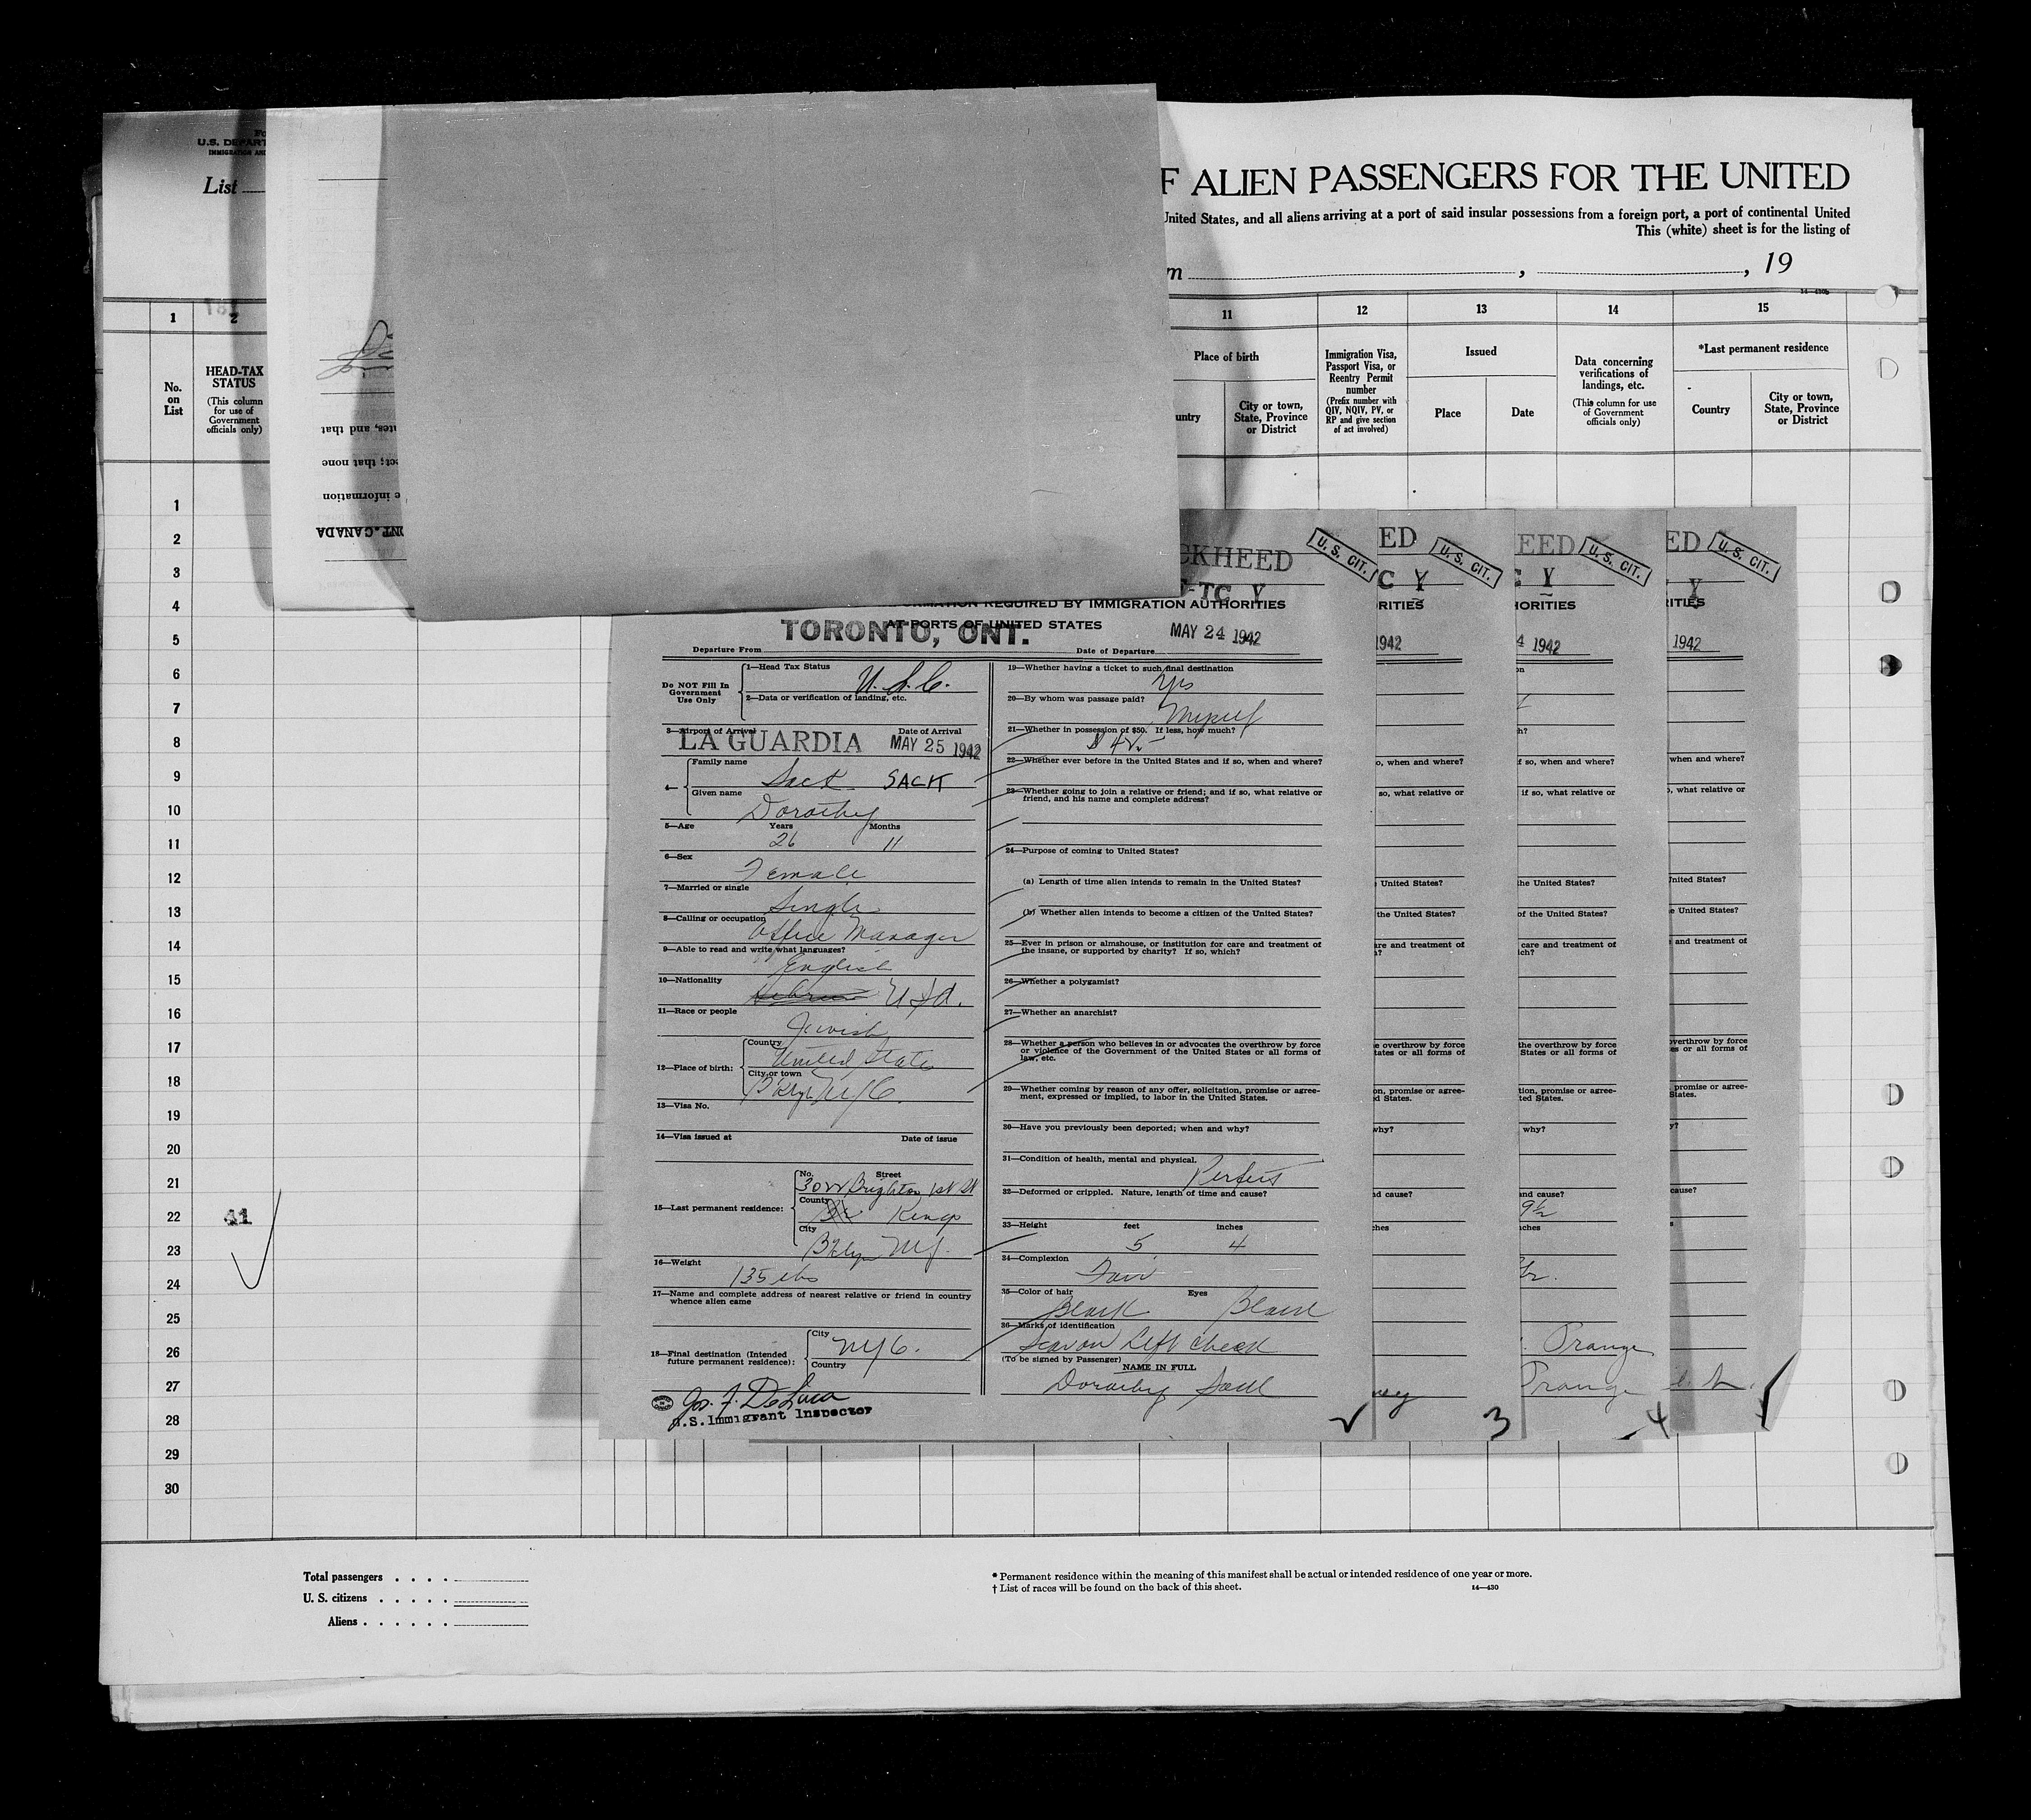 U.S. DEPART
IMMIGRATION AND
List
F ALIEN PASSENGERS FOR THE UNITED
United States, and all aliens arriving at a port of said insular possessions from a foreign port, a port of continental United
This (white) sheet is for the listing of
m , , 19
1 2 11 12 13 14 15
No. on List
HEAD-TAX STATUS
(This column for use of Government officials only)
Place of birth
untry
City or town, State, Province or District
Immigration Visa, Passport Visa, or Reentry Permit number
(Prefix number with QIV, NQIV, PV, or RP and give section of act involved)
Issued
Place
Date
Data concerning verifications of landings, etc.
(This column for use of Government officials only)
*Last permanent residence
Country
City or town, State, Province or District
ates, and that
ect; that none
e information
ONT. CANADA
1
2
3
4
5
6
7
8
9
10
11
12
13
14
15
16
17
18
19
20
21
22
23
24
25
26
27
28
29
30
41
CKHEED
U. S. CIT.
-TC Y
FORMATION REQUIRED BY IMMIGRATION AUTHORITIES
AT PORTS OF UNITED STATES
TORONTO, ONT.
MAY 24 1942
Departure From
Date of Departure
Do NOT Fill In Government Use Only
1—Head Tax Status
U.S.C.
2—Data or verification of landing, etc.
3—Airport of Arrival
Date of Arrival
LA GUARDIA MAY 25 1942
4—
Family name
Sack SACK
Given name
Dorothy
5—Age Years Months
26 11
6—Sex
Female
7—Married or single
Single
8—Calling or occupation
Office Manager
9—Able to read and write what languages?
English
10—Nationality
Hebrew U.S.A.
11—Race or people
Jewish
12—Place of birth:
Country
United States
City or town
Bklyn NYC.
13—Visa No.
14—Visa issued at Date of issue
15—Last permanent residence:
No. Street
3022 Brighton 1st St
County
Kings
City
Bklyn NY.
16—Weight
135 lbs
17—Name and complete address of nearest relative or friend in country whence alien came
18—Final destination (Intended future permanent residence):
City
NYC.
Country
Jos. F. DeLuca
U.S. Immigrant Inspector
19—Whether having a ticket to such final destination
Yes
20—By whom was passage paid?
Myself
21—Whether in possession of $50. If less, how much?
22—Whether ever before in the United States and if so, when and where?
23—Whether going to join a relative or friend; and if so, what relative or friend, and his name and complete address?
24—Purpose of coming to United States?
(a) Length of time alien intends to remain in the United States?
(b) Whether alien intends to become a citizen of the United States?
25—Ever in prison or almshouse, or institution for care and treatment of the insane, or supported by charity? If so, which?
26—Whether a polygamist?
27—Whether an anarchist?
28—Whether a person who believes in or advocates the overthrow by force or violence of the Government of the United States or all forms of law, etc.
29—Whether coming by reason of any offer, solicitation, promise or agreement, expressed or implied, to labor in the United States.
30—Have you previously been deported; when and why?
31—Condition of health, mental and physical.
Perfect
32—Deformed or crippled. Nature, length of time and cause?
33—Height feet inches
5 4
34—Complexion
Fair
35—Color of hair Eyes
Black
36—Marks of identification
Scar on Left Cheek
(To be signed by Passenger)
NAME IN FULL
Dorothy Sack
3
4
Orange
Orange
Total passengers . . . .
U. S. citizens . . . . .
Aliens . . . . . .
* Permanent residence within the meaning of this manifest shall be actual or intended residence of one year or more.
† List of races will be found on the back of this sheet.
14—430